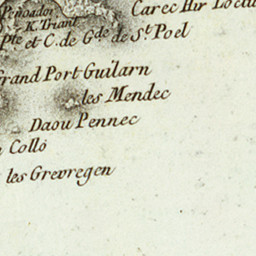 Carec Hir
K. Triant
Pte et C. de Gde de St. Poel
Grand Port Guilarn
les Mendec
Daou Pennec
Colló
les Grevregen